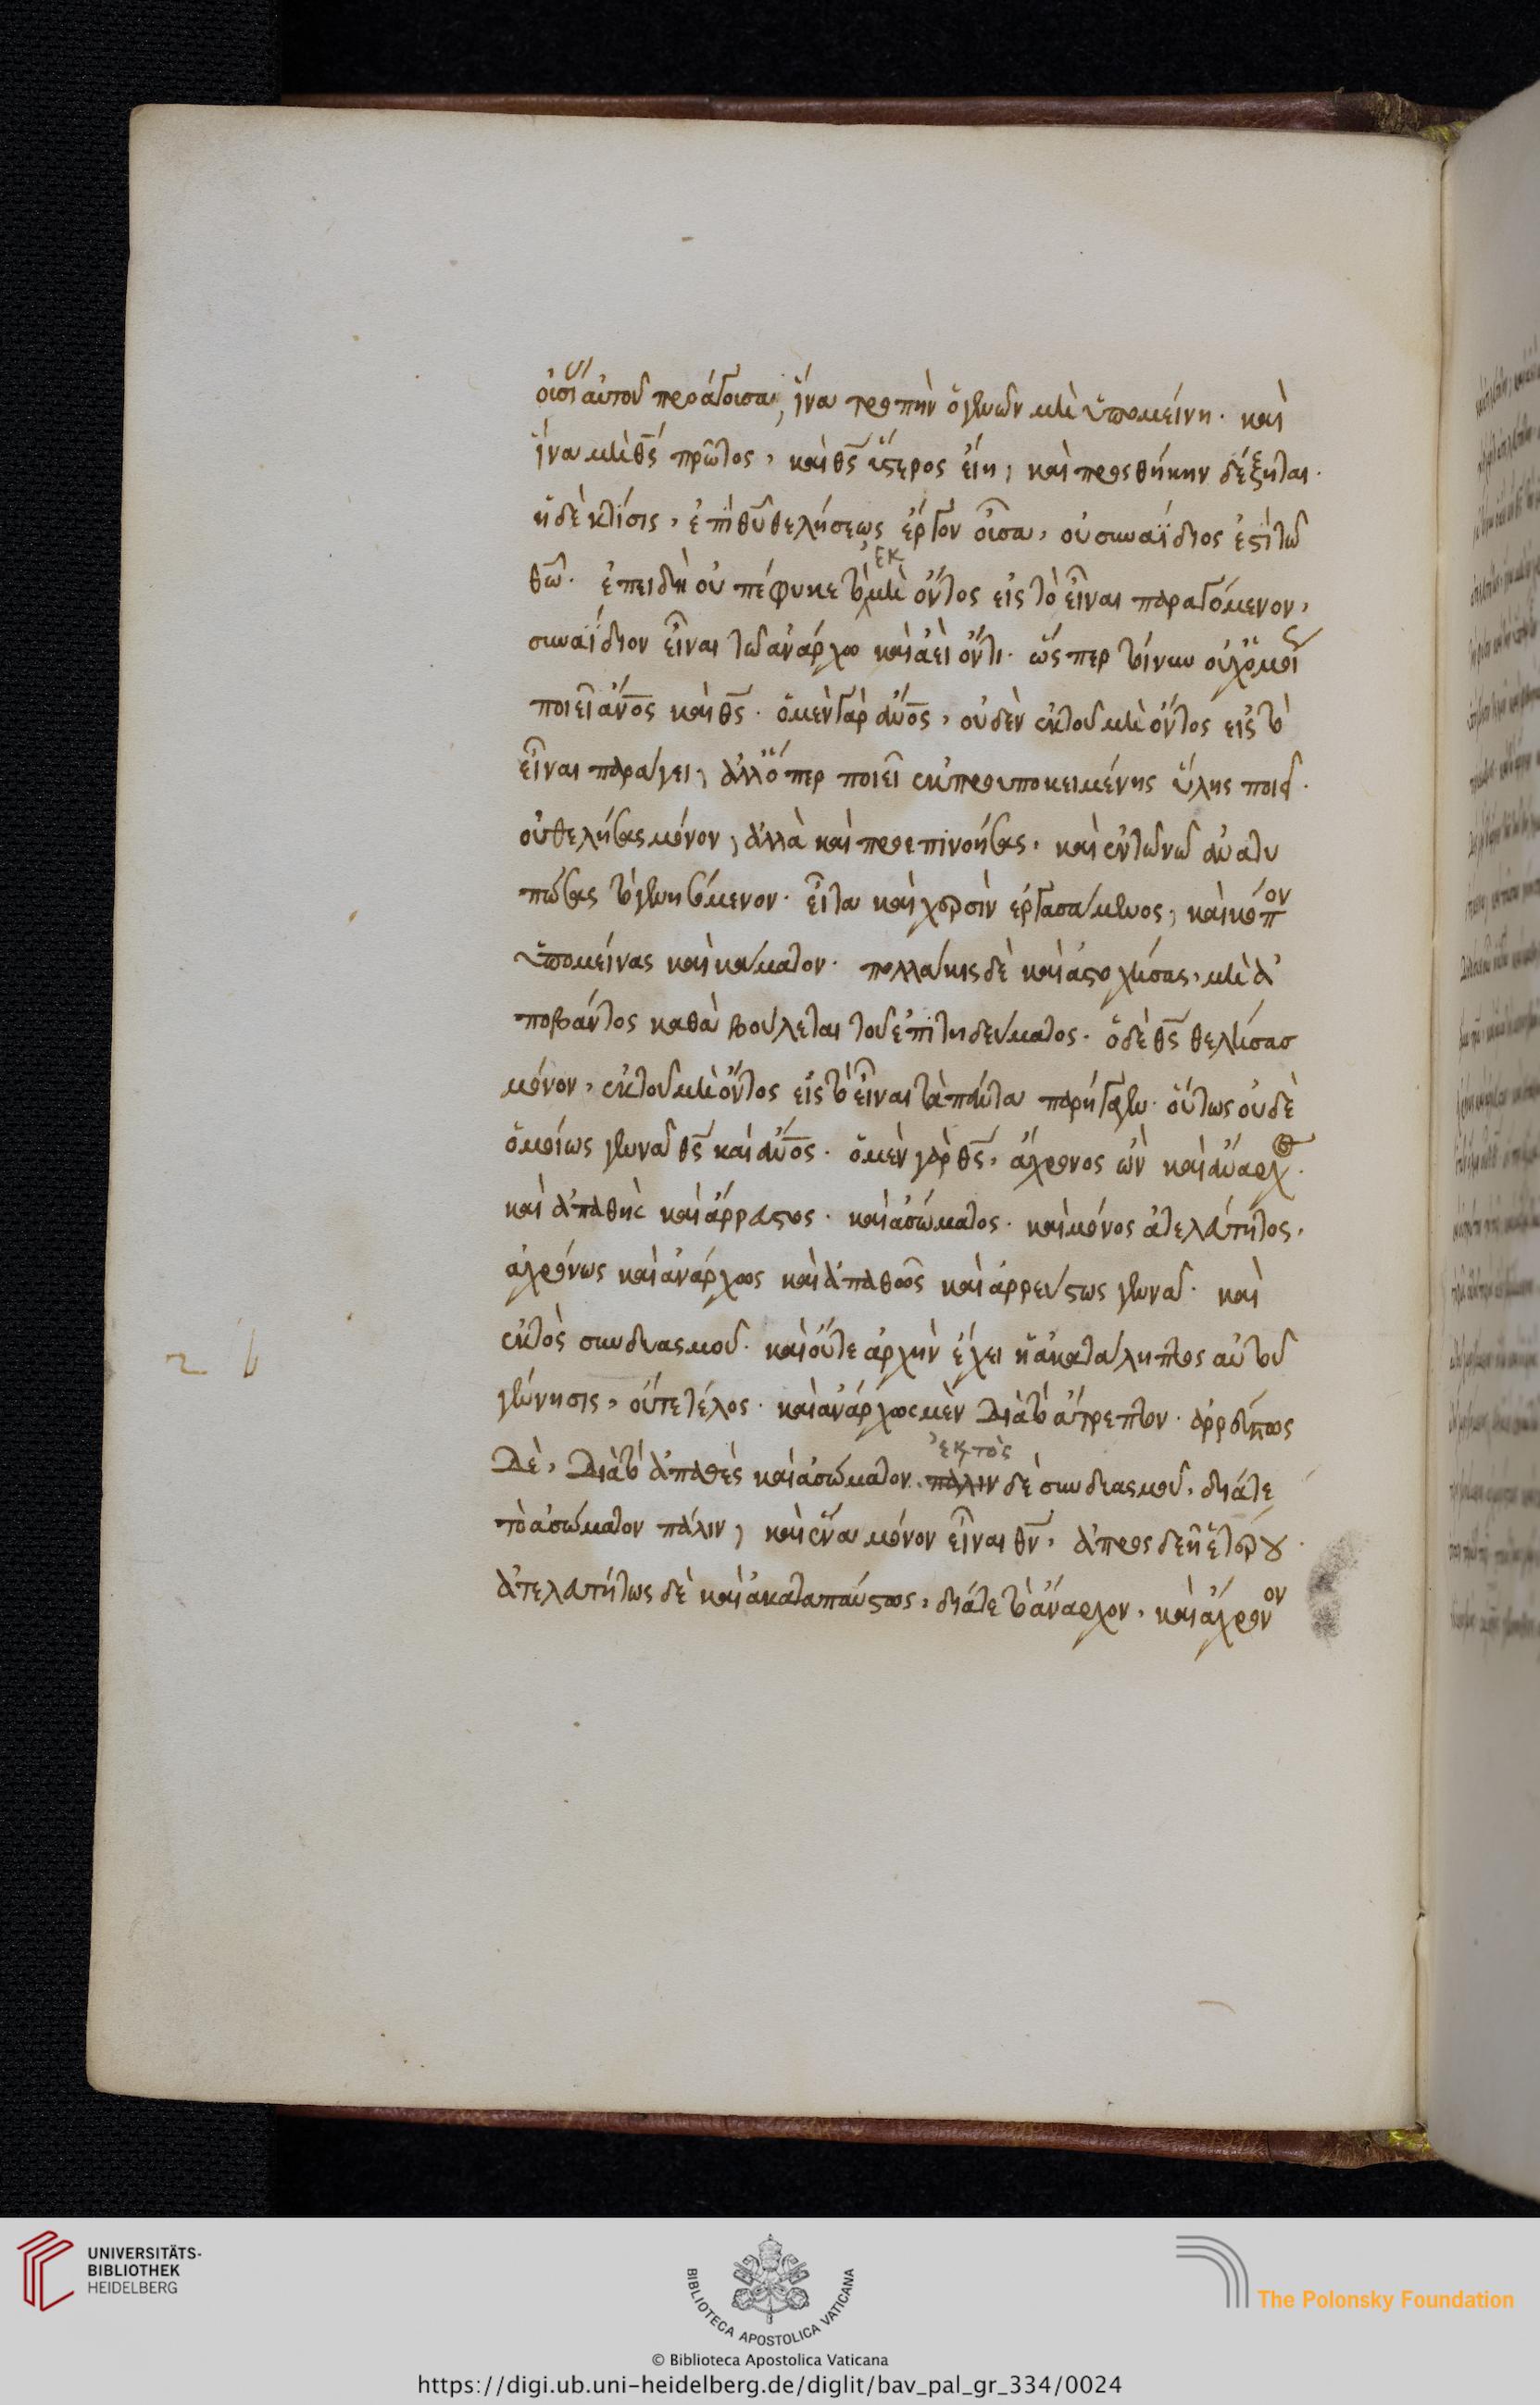 οὐσίας αὐτοῦ προάγουσα, ἵνα τροπὴν ὁ γεννῶν μὴ ὑπομείνη. καὶ
ἵνα μὴ θς πρῶτος, καὶ θς ὕστερος εἴη, καὶ προσθήκην δέξηται.
ἡ δὲ κτίσις, ἐπὶ θυ θελήσεως ἔργον οὖσα, οὐ συναΐδιος ἐστὶ τῶ
θῶ. ἐπειδὴ οὐ πέφυκε τὸ ἐκ μὴ ὄντος εἰς τὸ εἶναι παραγόμενον,
συναΐδιον εἶναι τῶ ἀνάρχω καὶ ἀεὶ ὄντι. ὥσπερ τοίνυν οὐχ ὁμοίως
ποιεῖ ἄνος καὶ θς. ὁ μὲν γὰρ ἄνος, οὐδὲν ἐκ τοῦ μὴ ὄντος εἰς τὸ
εἶναι παράγει, ἀλλ' ὅπερ ποιεῖ ἐκ προυποκειμένης ὕλης ποιεῖ.
οὐ θελήσας μόνον, ἀλλὰ καὶ προεπινοήσας, καὶ ἐν τῶ νῶ ἀνατυ
πώσας τὸ γενησόμενον. εἶτα καὶ χερσὶν ἐργασάμενος, καὶ κόπον
ὑπομείνας καὶ κάματον. πολλάκις δὲ καὶ ἀστοχήσας, μὴ ἀ
ποβάντος καθὰ βούλεται τοῦ ἐπιτηδεύματος. ὁ δὲ θς θελήσασ
μόνον, ἐκ τοῦ μὴ ὄντος εἰς τὸ εἶναι τὰ πάντα παρήγαγεν. οὕτως οὐδὲ
ὁμοίως γεννᾶ θς καὶ ἄνος. ὁ μὲν γὰρ θς, ἄχρονος ὢν καὶ ἄναρχος.
καὶ ἀπαθὴς καὶ ἄρρευστος. καὶ ἀσώματος. καὶ μόνος ἀτελεύτητος.
ἀχρόνως καὶ ἀνάρχως καὶ ἀπαθῶς καὶ ἀρρεύστως γεννᾶ. καὶ
ἐκτὸς συνδυασμοῦ. καὶ οὔτε ἀρχὴν ἔχει ἡ ἀκατάληπτος αὐτοῦ
γέννησις, οὔτε τέλος. καὶ ἀνάρχως μὲν διὰ τὸ ἄτρεπτον. ἀρρεύστως
δὲ, διὰ τὸ ἀπαθὲς καὶ ἀσώματον. πάλιν ἐκτὸς δὲ συνδυασμοῦ, διά τε
τὸ ἀσώματον πάλιν, καὶ ἕνα μόνον εἶναι θν, ἀπροσδεῆ ἑτέρου.
ἀτελευτήτως δὲ καὶ ἀκαταπαύστως, διά τε τὸ ἄναρχον, καὶ ἄχρονον
UNIVERSITÄTS-
BIBLIOTHEK
HEIDELBERG
BIBLIOTECA APOSTOLICA VATICANA
The Polonsky Foundation
© Biblioteca Apostolica Vaticana
https://digi.ub.uni-heidelberg.de/diglit/bav_pal_gr_334/0024